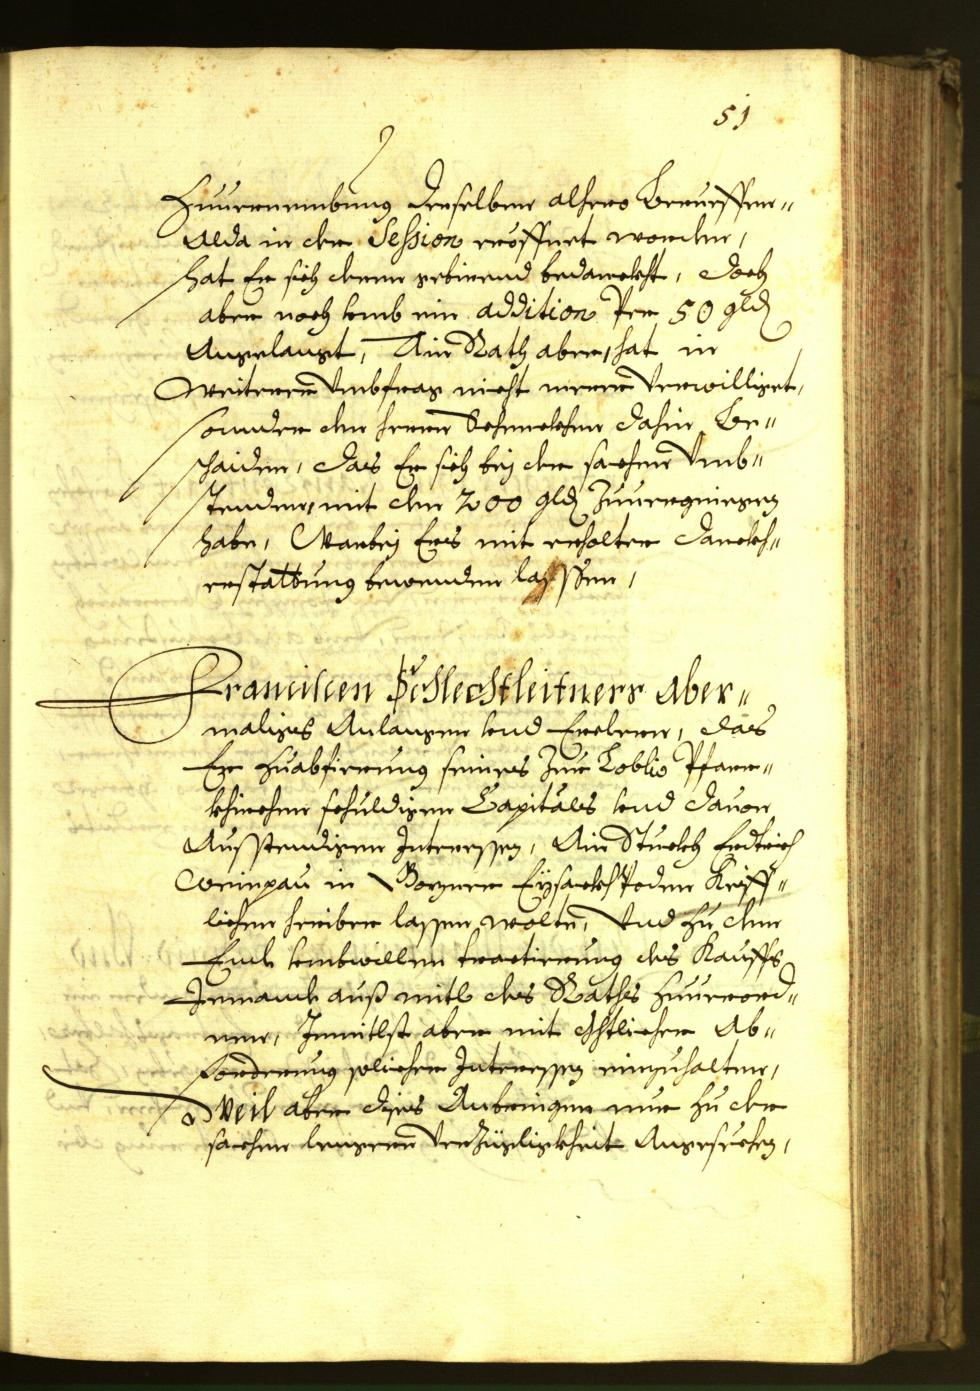 51
Zuuernembung derselben alhero Berueffen„
Alda in der Session eröffnet worden,
hat Er sich deren gebirend bedanckht, doch
aber noch umb ein addition Per 50 gld
Angelangt, Ain Rath aber, hat in
weiteren Umbfrag nicht meres Verwilliget,
sonnder den herrn dahin Be„
schaiden, das Er sich bej der sachen Umb„
stenden, mit den 200 gld Zuuergniegen
habe, Warbej Ers mit erholter danckh„
erstattung bewenden lassen,
Francilien Schlechtleitners Aber„
maliges Anlangen und Erclern, das
Er zu abfierung seines Zur Löblich Pfarr„
khirchen schuldigen Capitales und dauon
Ausstendigen Interessen, Ain Stuckh Erdtrich
Weinpau in Bozner Eysackh Poden Keiff„
lichen hinüber lassen wolte, Und zu dem
Ende umbwillen tractierung des Kauffs
Jemande auß mitl des Raths zuuerord„
nen, Inmitlst aber mit Gehtlicher Ab„
forderung solicher Interessen einzuhalten,
Weil aber dises Anbringen nur zu der
sachen lengern Verzüglichkheit Angesechen,